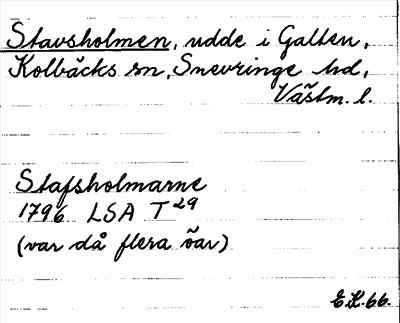 Stavsholmen, udde i Galten,
Kolbäcks sn, Snevringe hd,
Västm. l.
Stafsholmarne
1796 LSA T 29
(var då flera öar)
E.H. 66.